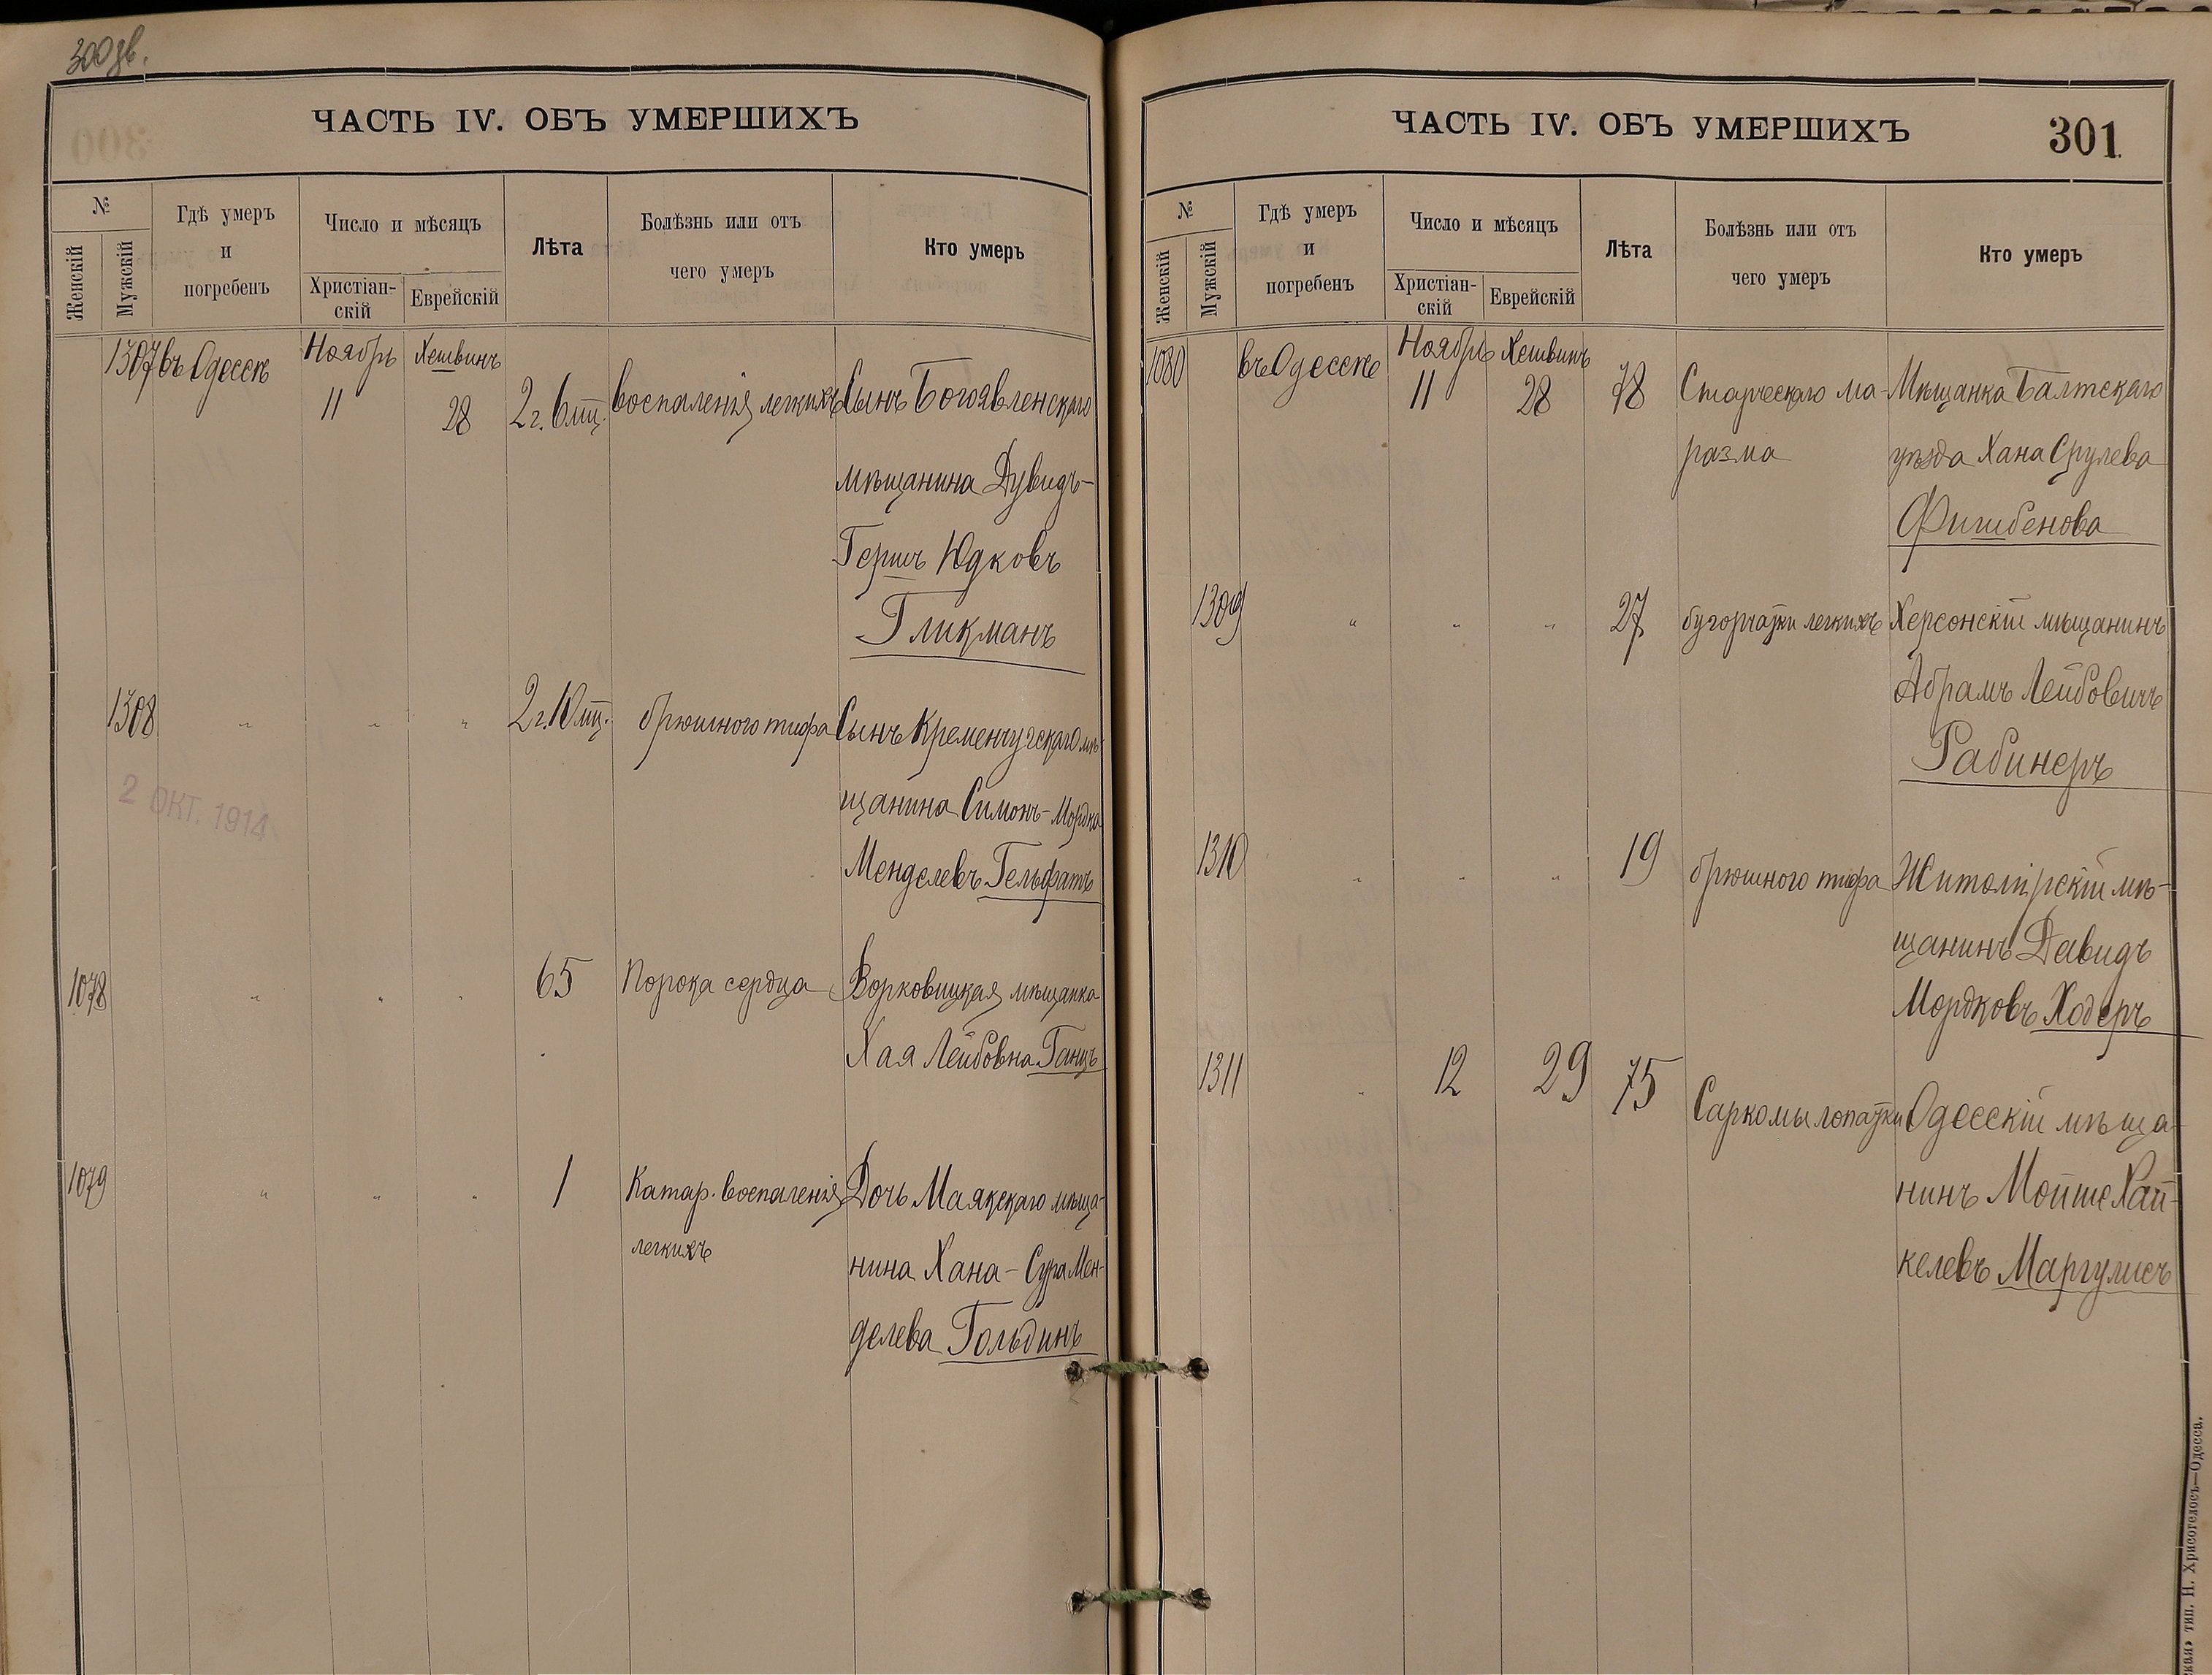 300 зв.
ЧАСТЬ IV. ОБЪ УМЕРШИХЪ
№
Женскій
Мужскій
Гдѣ умеръ
и
погребенъ
Число и мѣсяцъ
Христіан-
скій
Еврейскій
Лѣта
Болѣзнь или отъ
чего умеръ
Кто умеръ
1307 въ Одессѣ Ноябрь Хешвинъ
11 28 2 г. 6 мц. воспаленія легкихъ Сынъ Богоявленскаго
мѣщанина Дувидъ-
Гершъ Юдковъ
Гликманъ
1308 " " " 2 г. 10 мц. брюшного тифа Сынъ Кременчугскаго мѣ-
щанина Симонъ-Мордко
Менделевъ Гельфатъ
2 ОКТ. 1914
1078 " " " 65 Порока сердца Ворковицкая мѣщанка
Хая Лейбовна Ганцъ
1079 " " " 1 Катар. воспаленія Дочь Маякскаго мѣща-
легкихъ нина Хана-Сура Мен-
делева Гольдинъ
ЧАСТЬ IV. ОБЪ УМЕРШИХЪ
301
№
Женскій
Мужскій
Гдѣ умеръ
и
погребенъ
Число и мѣсяцъ
Христіан-
скій
Еврейскій
Лѣта
Болѣзнь или отъ
чего умеръ
Кто умеръ
1080 въ Одессѣ Ноябрь Хешвинъ
11 28 78 Старческаго ма- Мѣщанка Балтскаго
разма уѣзда Хана Срулева
Фишбенова
1309 " " " 27 бугорчатки легкихъ Херсонскій мѣщанинъ
Абрамъ Лейбовичъ
Рабинеръ
1310 " " " 19 брюшного тифа Житомірскій мѣ-
щанинъ Давидъ
Мордковъ Ходеръ
1311 " 12 29 75 Саркомы лопатки Одесскій мѣща-
нинъ Мойше Хай-
келевъ Маргулисъ
тип. Н. Хрисогелосъ—Одесса.